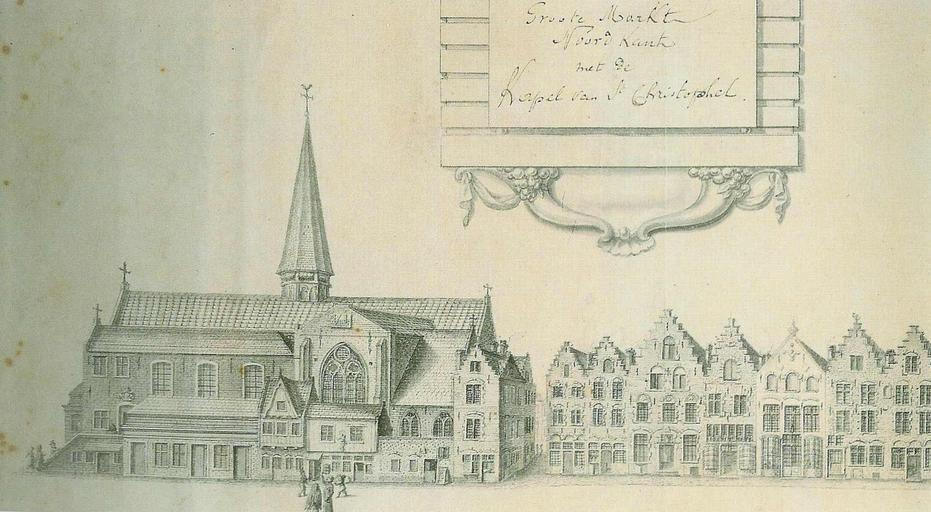 Groote Markt
Noord Kant
met de
Kapel van St Christophel.